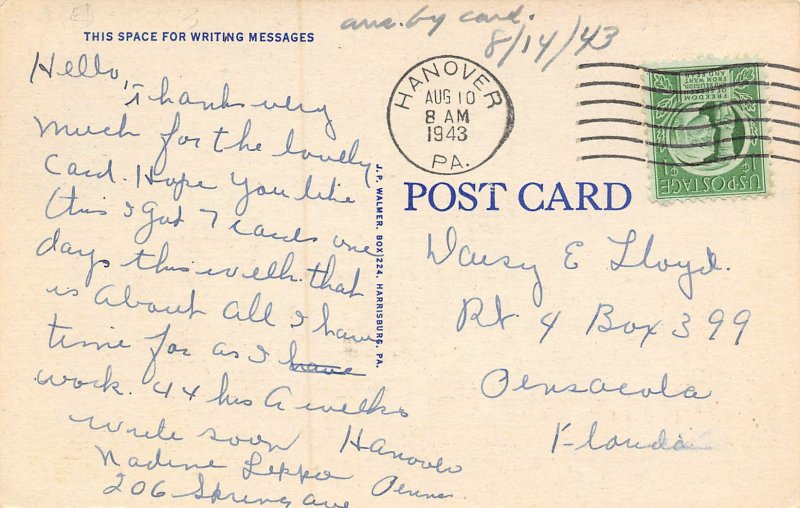 ans. by card.
8/14/43
THIS SPACE FOR WRITING MESSAGES
Hello,
Thanks very
much for the lovely
Card. Hope you like
this I got 7 cards one
days this week. that
is About all I have
time for as I have
work. 44 hrs A weeks
write soon
Nadine Leppo
206 Spring ave
Hanover
Penna
J. P. WALMER, BOX 1224, HARRISBURG, PA.
HANOVER
AUG 10
8 AM
1943
PA.
FREEDOM
OF SPEECH
AND RELIGION
FROM WANT
AND FEAR
US POSTAGE
1¢
POST CARD
Daisy E Lloyd.
Rt. 4 Box 399
Pensacola
Florida